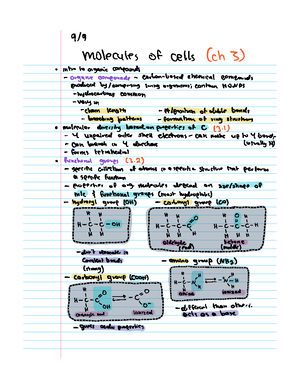 9/9
Molecules of cells (ch 3)
• intro to organic compounds
- organic compounds - carbon-based chemical compounds
produced by/comprising living organisms; contain
- hydrocarbons common
- vary in
- chain length - # location of double bonds
- branching patterns - formation of ring structures
• molecular diversity based on properties of C (3.1)
- 4 unpaired outer shell electrons - can make up to 4 bonds
- can branch in 4 directions (usually H)
- forms tetrahedral
• functional groups (3.2)
- specific collection of atoms in a specific structure that performs
a specific function
- properties of org molecules depend on size/shape of
& functional groups (most hydrophilic)
- hydroxyl group (OH) - carbonyl group (CO)
H H
H-C-C-OH
H H
aldehyde
(end)
ketone
(middle)
- don't
covalent bonds
- carboxyl group (COOH)
ionized
- gives acidic properties
- amino group (NH2)
amine
ionized
- different than others,
acts as a base